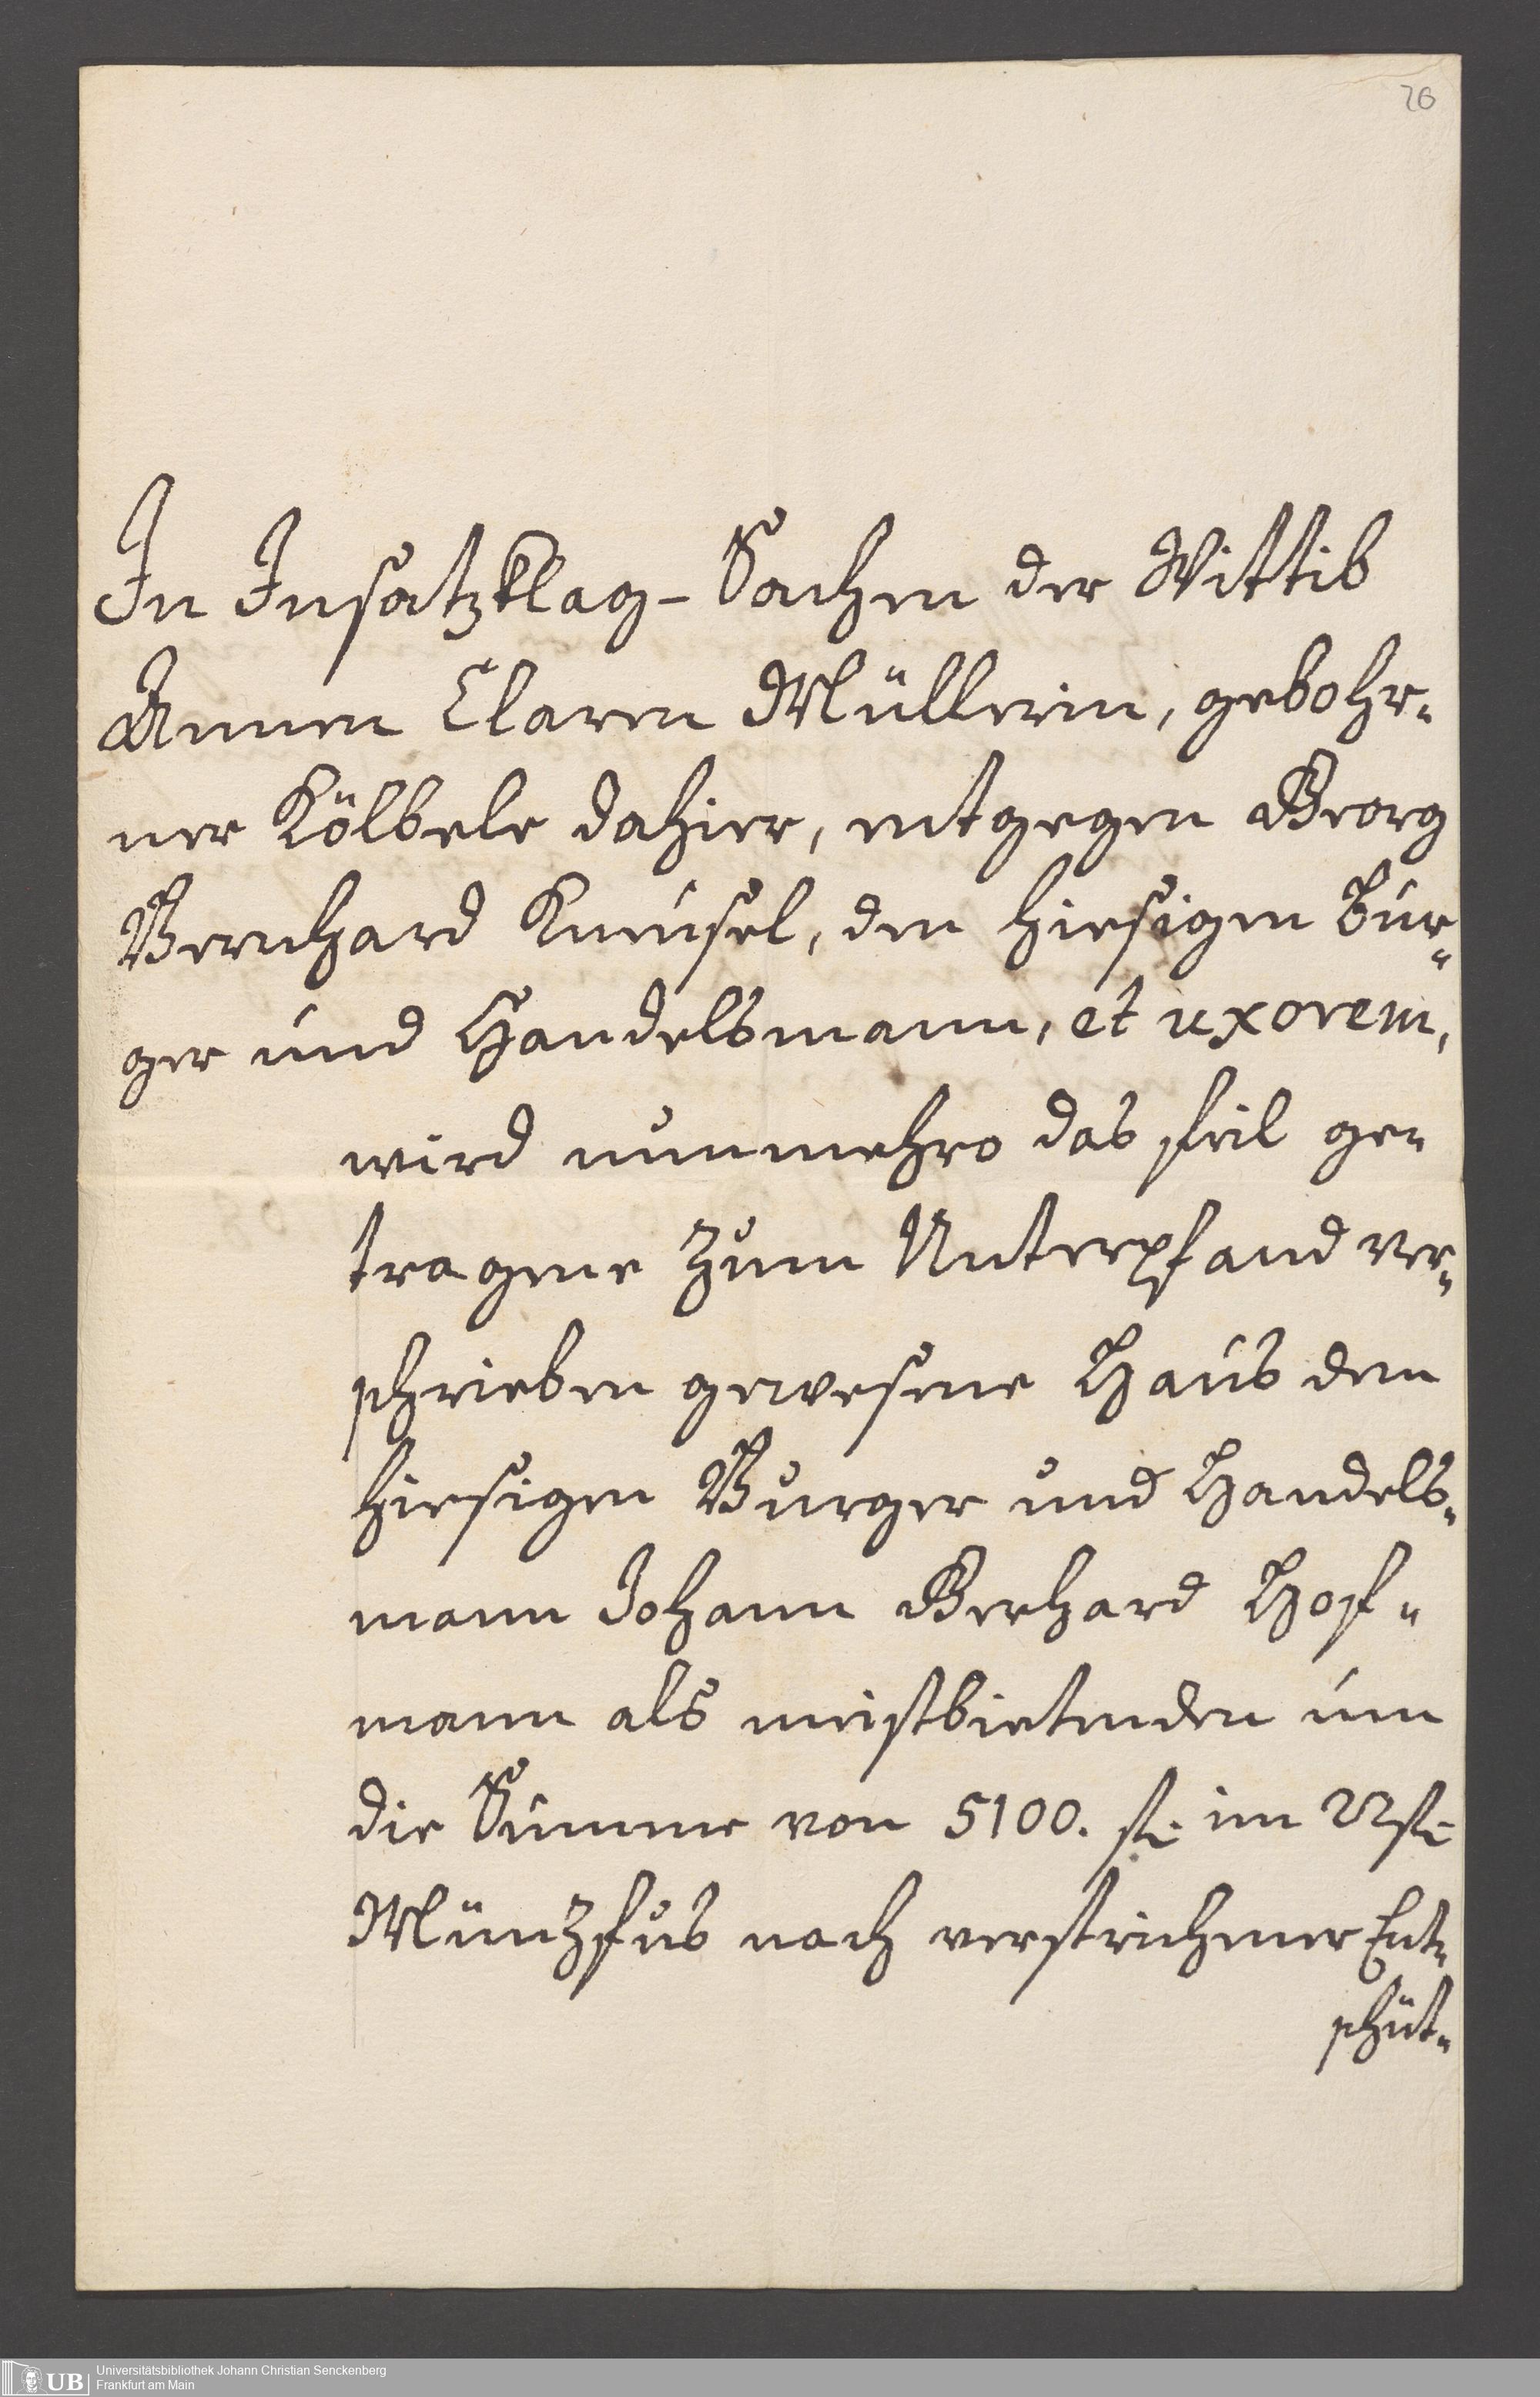 26
In Insatzklag-Sachen der Wittib
Annen Claren Müllerin, gebohr„
ner Kölbele dahier, entgegen Georg
Bernhard Kneusel, den hiesigen Bur„
ger und Handelsmann, et uxorem,
wird nunmehro das feil ge„
tragene zum Unterpfand ver„
schrieben gewesene Haus dem
hiesigen Burger und Handels„
mann Johann Gerhard Hof„
mann als meistbietenden um
die Summe von 5100. fl: im 22fl:
Münzfus nach verstrichener Ent„
schüt„
UB
Universitätsbibliothek Johann Christian Senckenberg
Frankfurt am Main